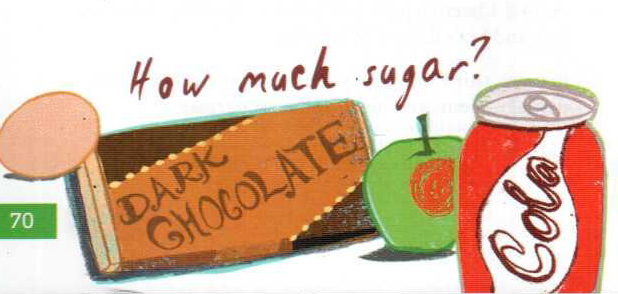 How much sugar?
DARK
CHOCOLATE
Cola
70